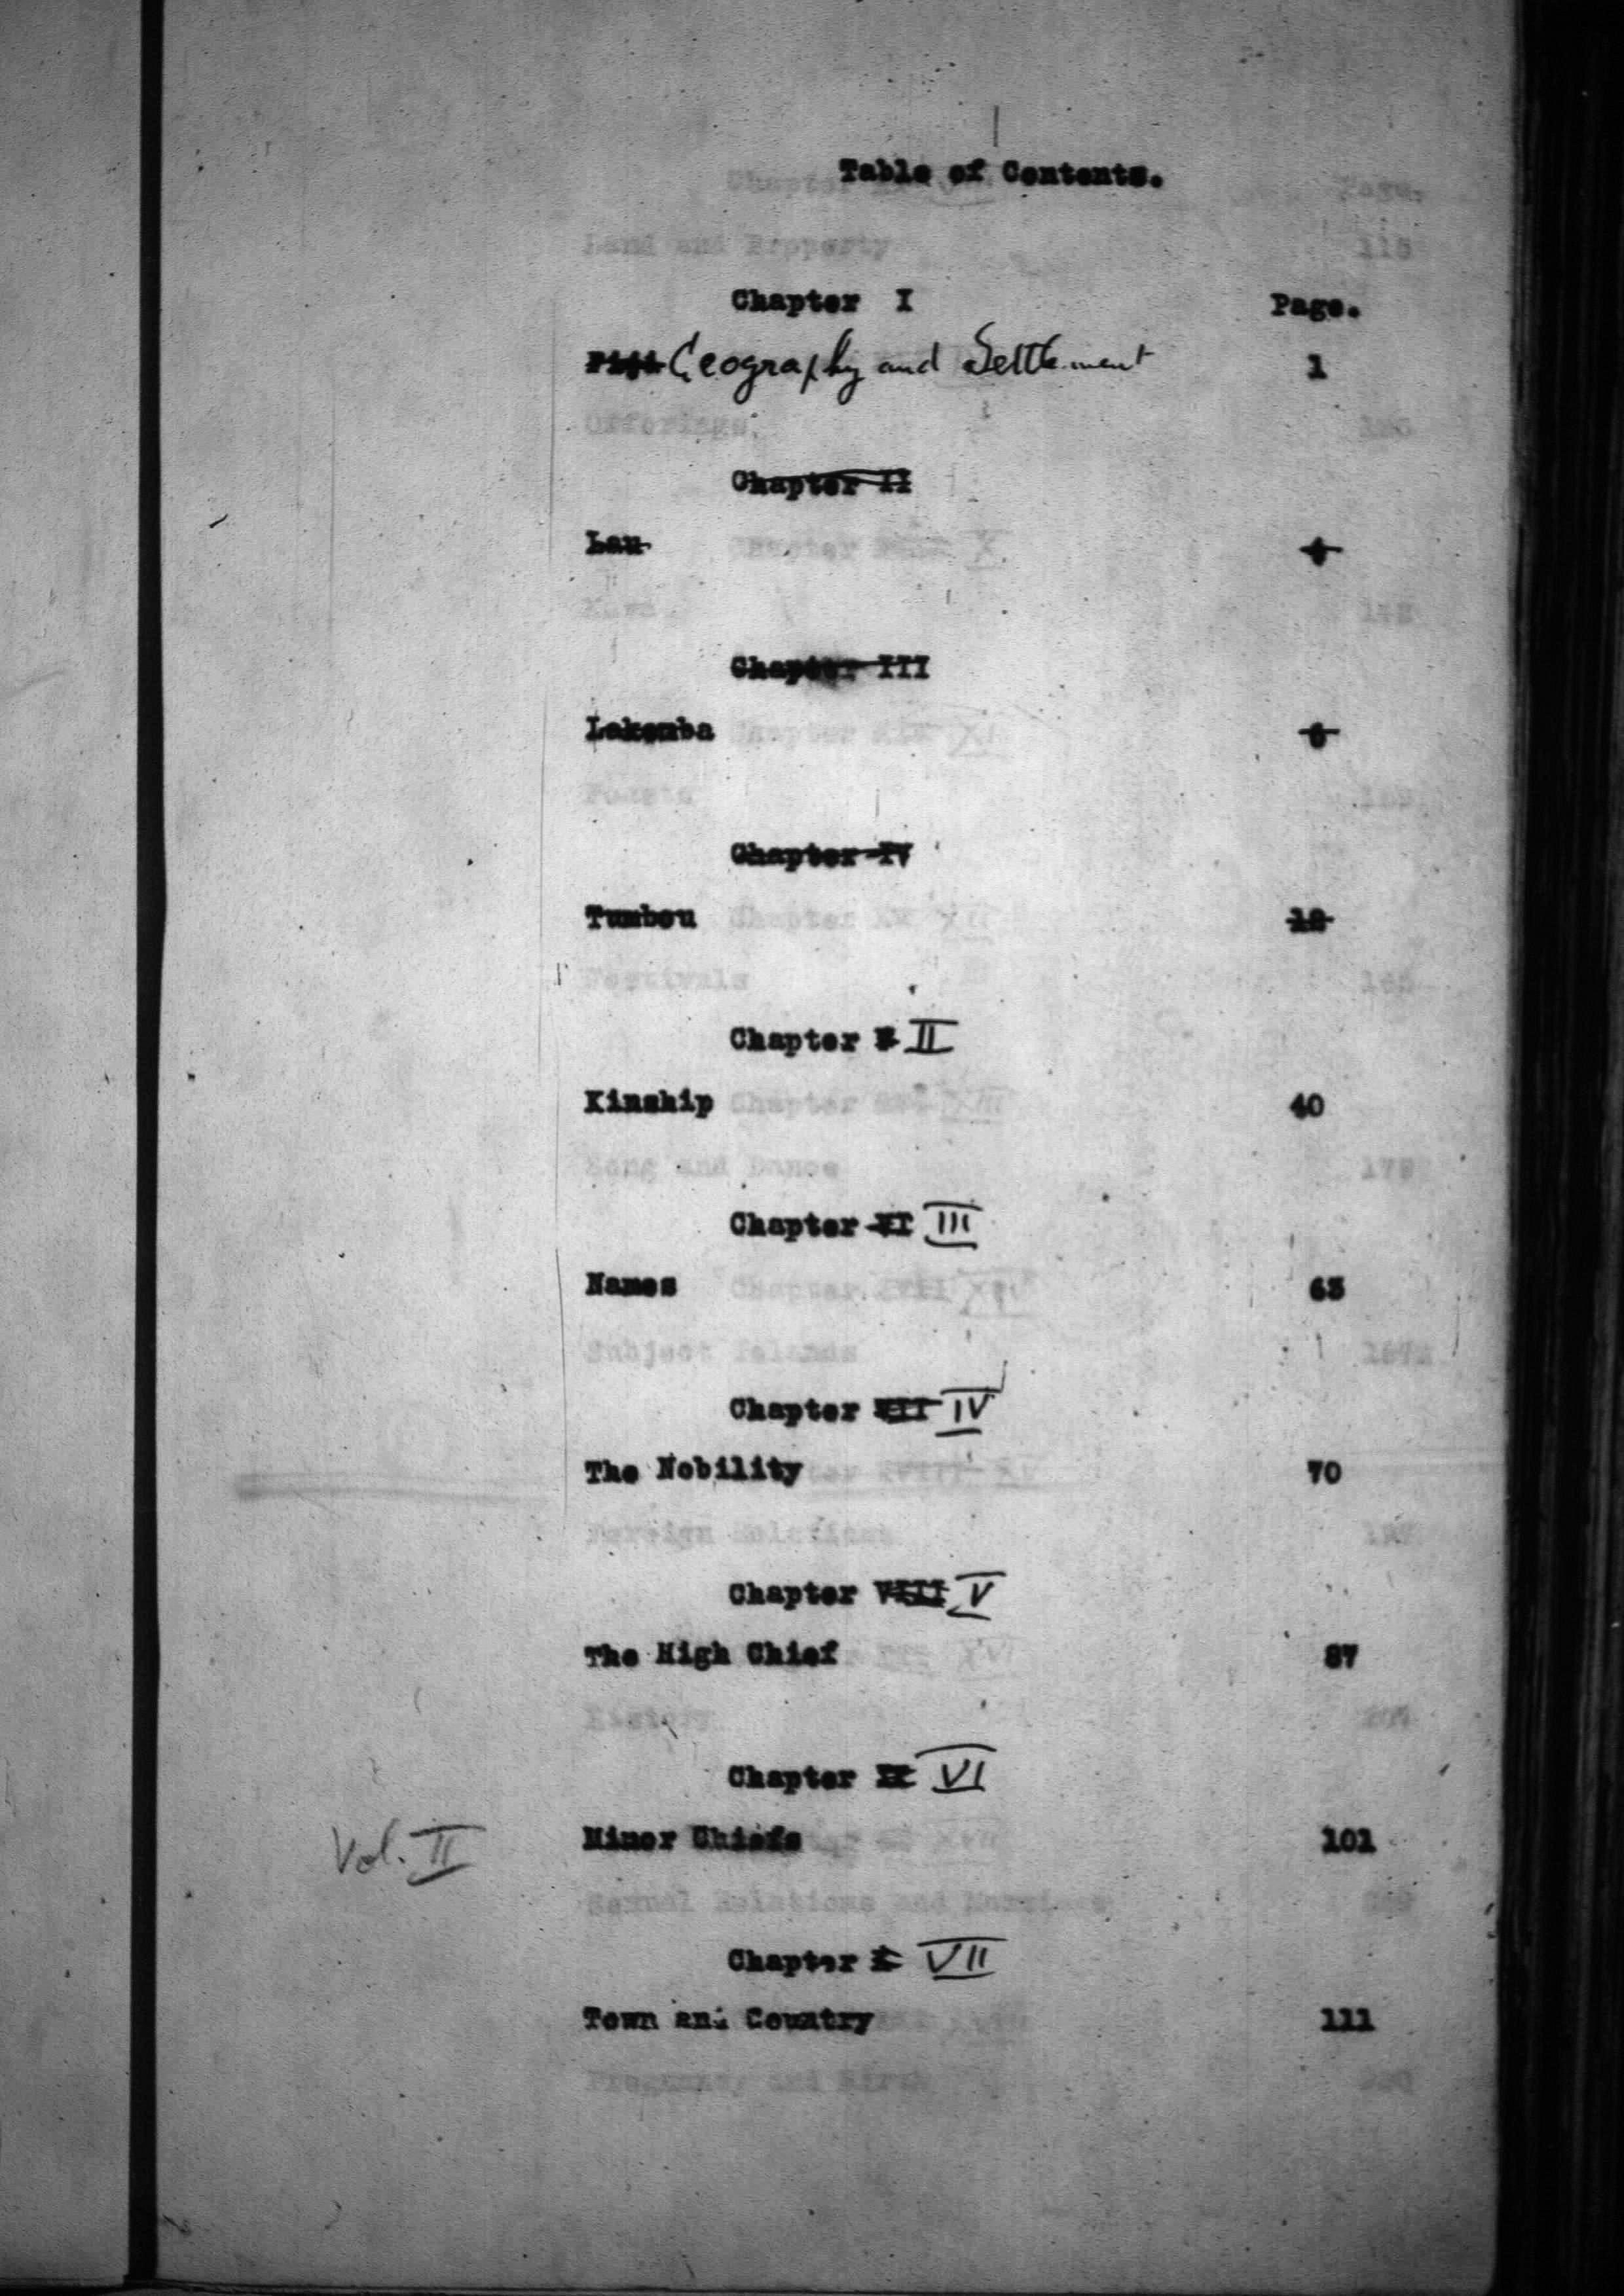 Table of Contents.
Chapter I Page.
Fiji Geography and Settlement 1
Chapter II
Lau
Chapter III
Lakemba 6
Chapter IV
Tumbou 12
Chapter V II
Kinship 40
Chapter VI III
Names 63
Chapter VII IV
The Nobility 70
Chapter VIII V
The High Chief 87
Chapter IX VI
Vol. II Minor Chiefs 101
Chapter X VII
Town and Country 111